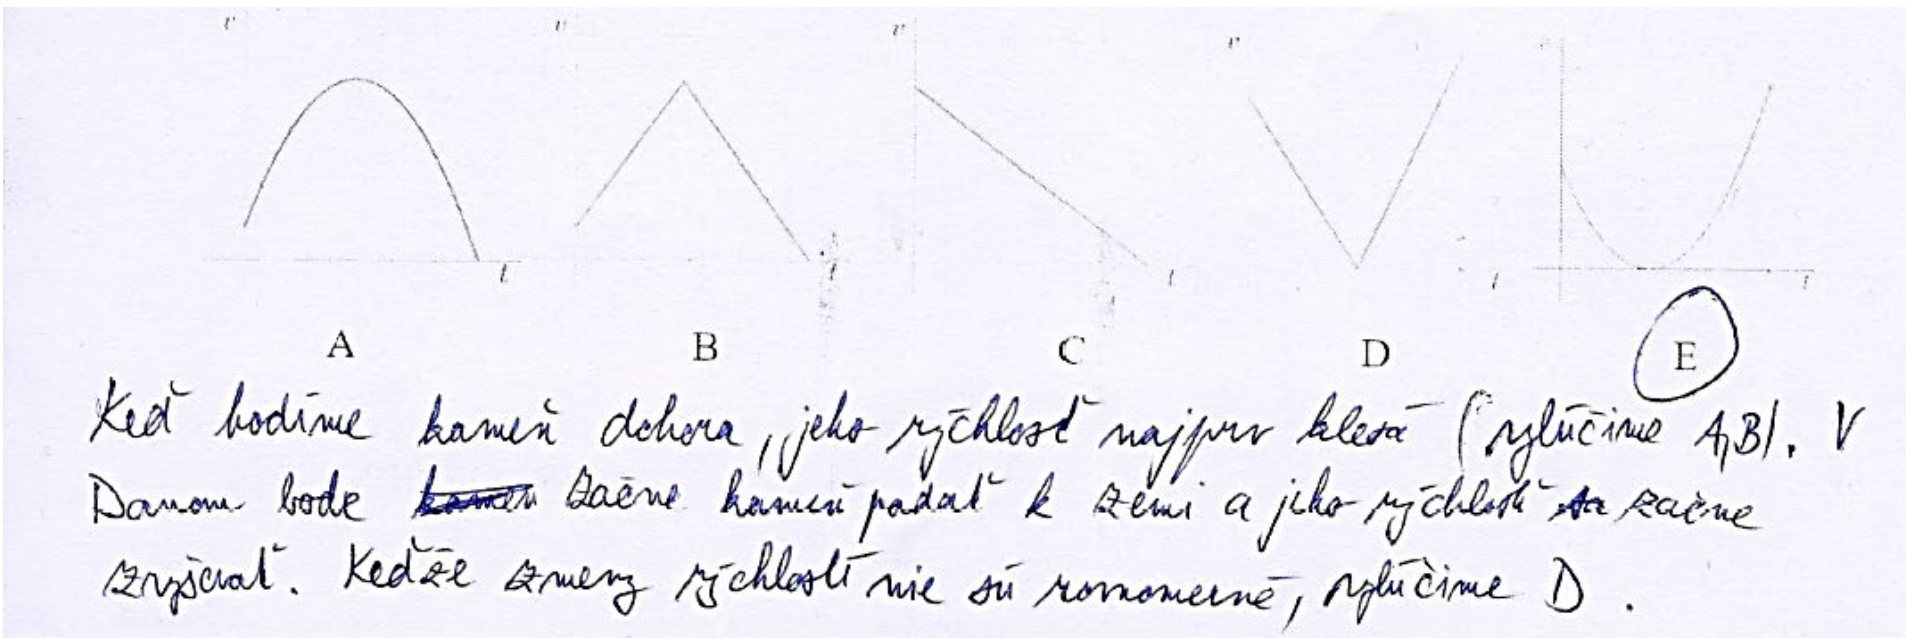 v v v v v
t t t t t
A B C D E
Keď hodíme kameň dohora, jeho rýchlosť najprv klesá (vylúčime A,B). V
Danom bode kameň začne kameň padať k zemi a jeho rýchlosť sa začne
zvyšovať. Keďže zmeny rýchlosti nie sú rovnomerné, vylúčime D.